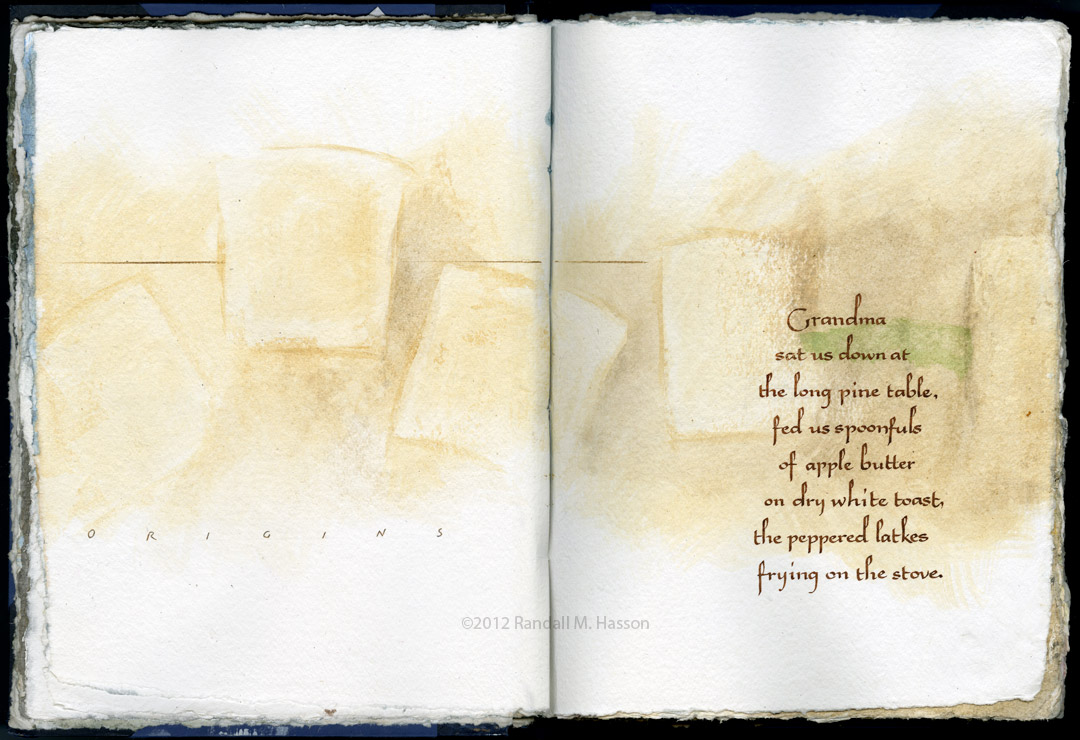 O R I G I N S
Grandma
sat us down at
the long pine table,
fed us spoonfuls
of apple butter
on dry white toast,
the peppered latkes
frying on the stove.
©2012 Randall M. Hasson